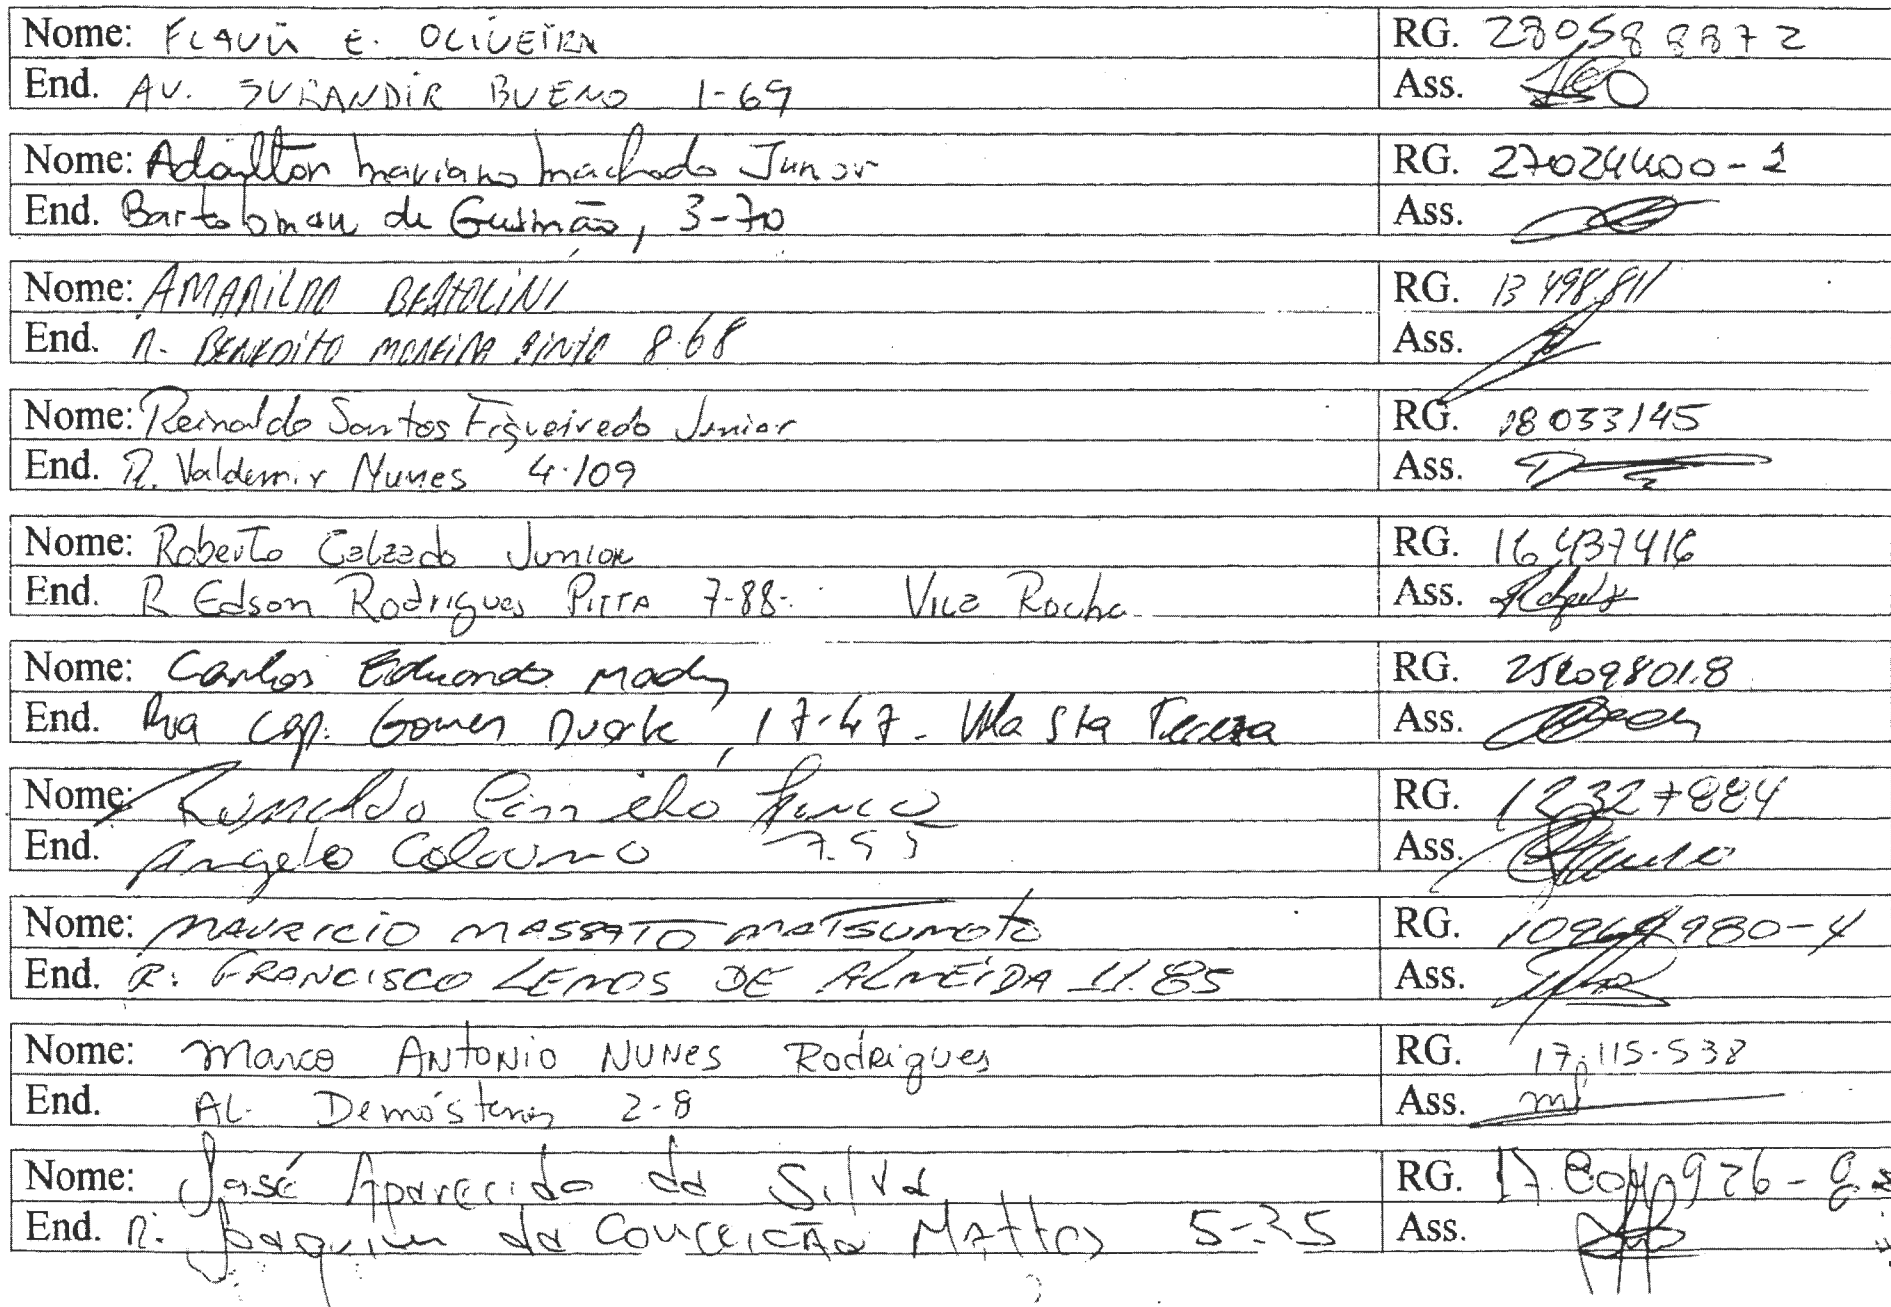 Nome: FLAVIA E. OLIVEIRA RG. 280588872
End. AV. JURANDIR BUENO 1-69 Ass.
Nome: Adailton mariano machado Junior RG. 27024400-1
End. Bartolomeu de Gusmão, 3-70 Ass.
Nome: AMARILDO BERTOLINI RG. 13 498.811
End. R. BENEDITO MOREIRA PINTO 8-68 Ass.
Nome: Reinaldo Santos Figueiredo Junior RG. 18033145
End. R. Valdemir Nunes 4-109 Ass.
Nome: Roberto Calzado Junior RG. 16437416
End. R Edson Rodrigues PITTA 7-88- Vila Rocha Ass.
Nome: Carlos Eduardo Mady RG.
End. Rua Cap. Gomes Duarte, 17-47 - Vila Sta Tereza Ass.
Nome: Reinaldo Franco RG. 12327884
End. Angelo 7.55 Ass.
Nome: MAURICIO MASSATO MATSUMOTO RG. 10964980-4
End. R: FRANCISCO LEMOS DE ALMEIDA 11.85 Ass.
Nome: Marco ANTONIO NUNES Rodrigues RG. 17.115.538
End. AL. Demóstenes 2-8 Ass.
Nome: José Aparecido da Silva RG.
End. R. Joaquim da CONCEIÇÃO Mattos 5-35 Ass.